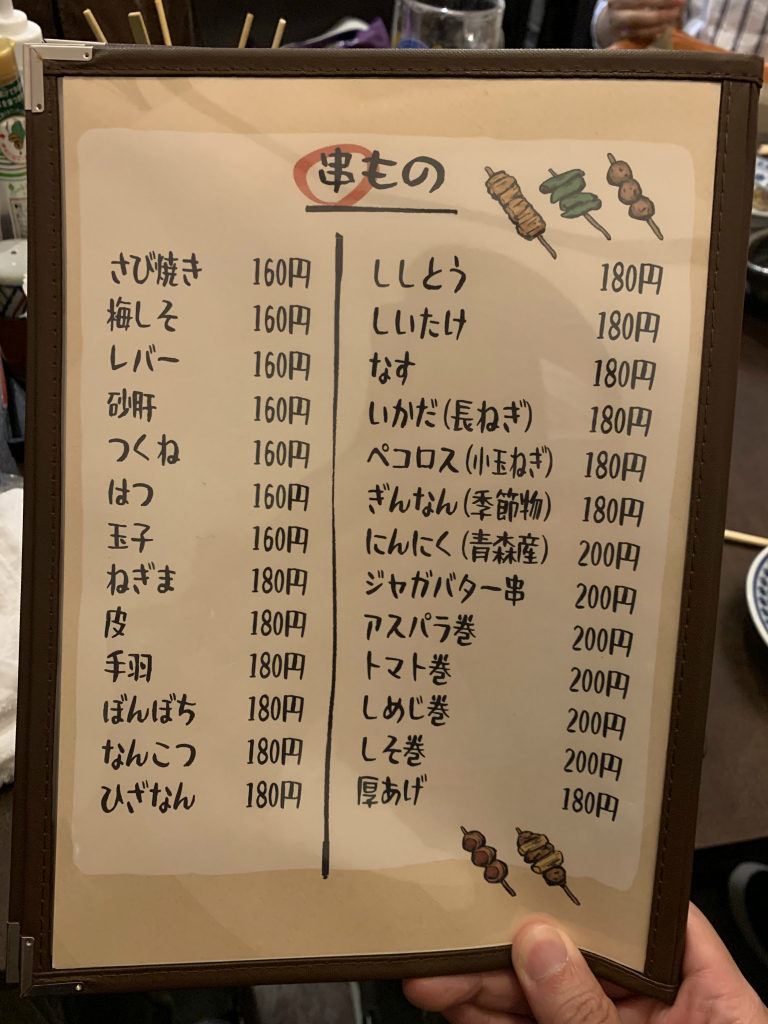 串もの
さび焼き 160円
梅しそ 160円
レバー 160円
砂肝 160円
つくね 160円
はつ 160円
玉子 160円
ねぎま 180円
皮 180円
手羽 180円
ぼんぼち 180円
なんこつ 180円
ひざなん 180円
ししとう 180円
しいたけ 180円
なす 180円
いかだ(長ねぎ) 180円
ペコロス(小玉ねぎ) 180円
ぎんなん(季節物) 180円
にんにく(青森産) 200円
ジャガバター串 200円
アスパラ巻 200円
トマト巻 200円
しめじ巻 200円
しそ巻 200円
厚あげ 180円